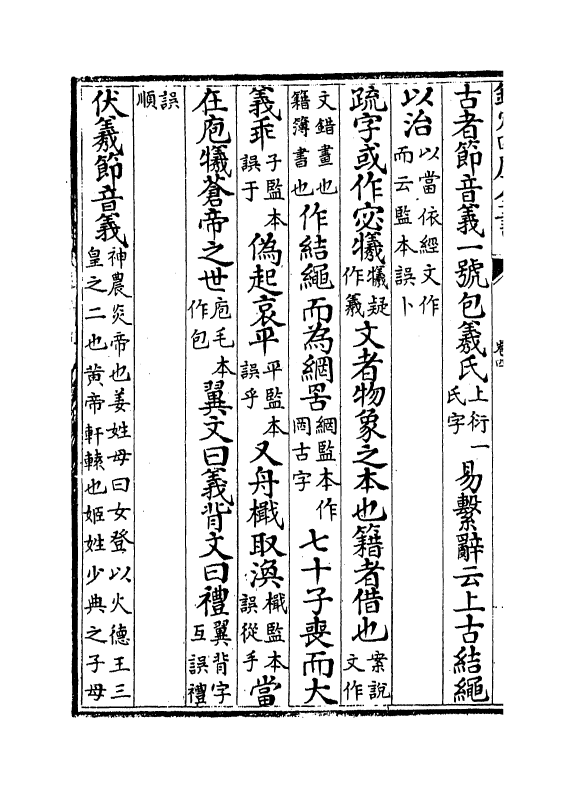 古者節音義一號包羲氏上衍一氏字易繫辭云上古結繩
以治以當依經文作而云監本誤卜
疏字或作宓犧犧疑作義文者物象之本也籍者借也案說文作
文錯畫也籍簿書也作結繩而為網罟網監本作罔古字七十子喪而大
義乖子監本誤于偽起哀平平監本誤乎又舟檝取渙檝監本誤從手當
在庖犧蒼帝之世庖毛本作包翼文曰義背文曰禮翼背字互誤禮
誤順
伏羲節音義神農炎帝也姜姓母曰女登以火德王三皇之二也黄帝軒轅也姬姓少典之子母